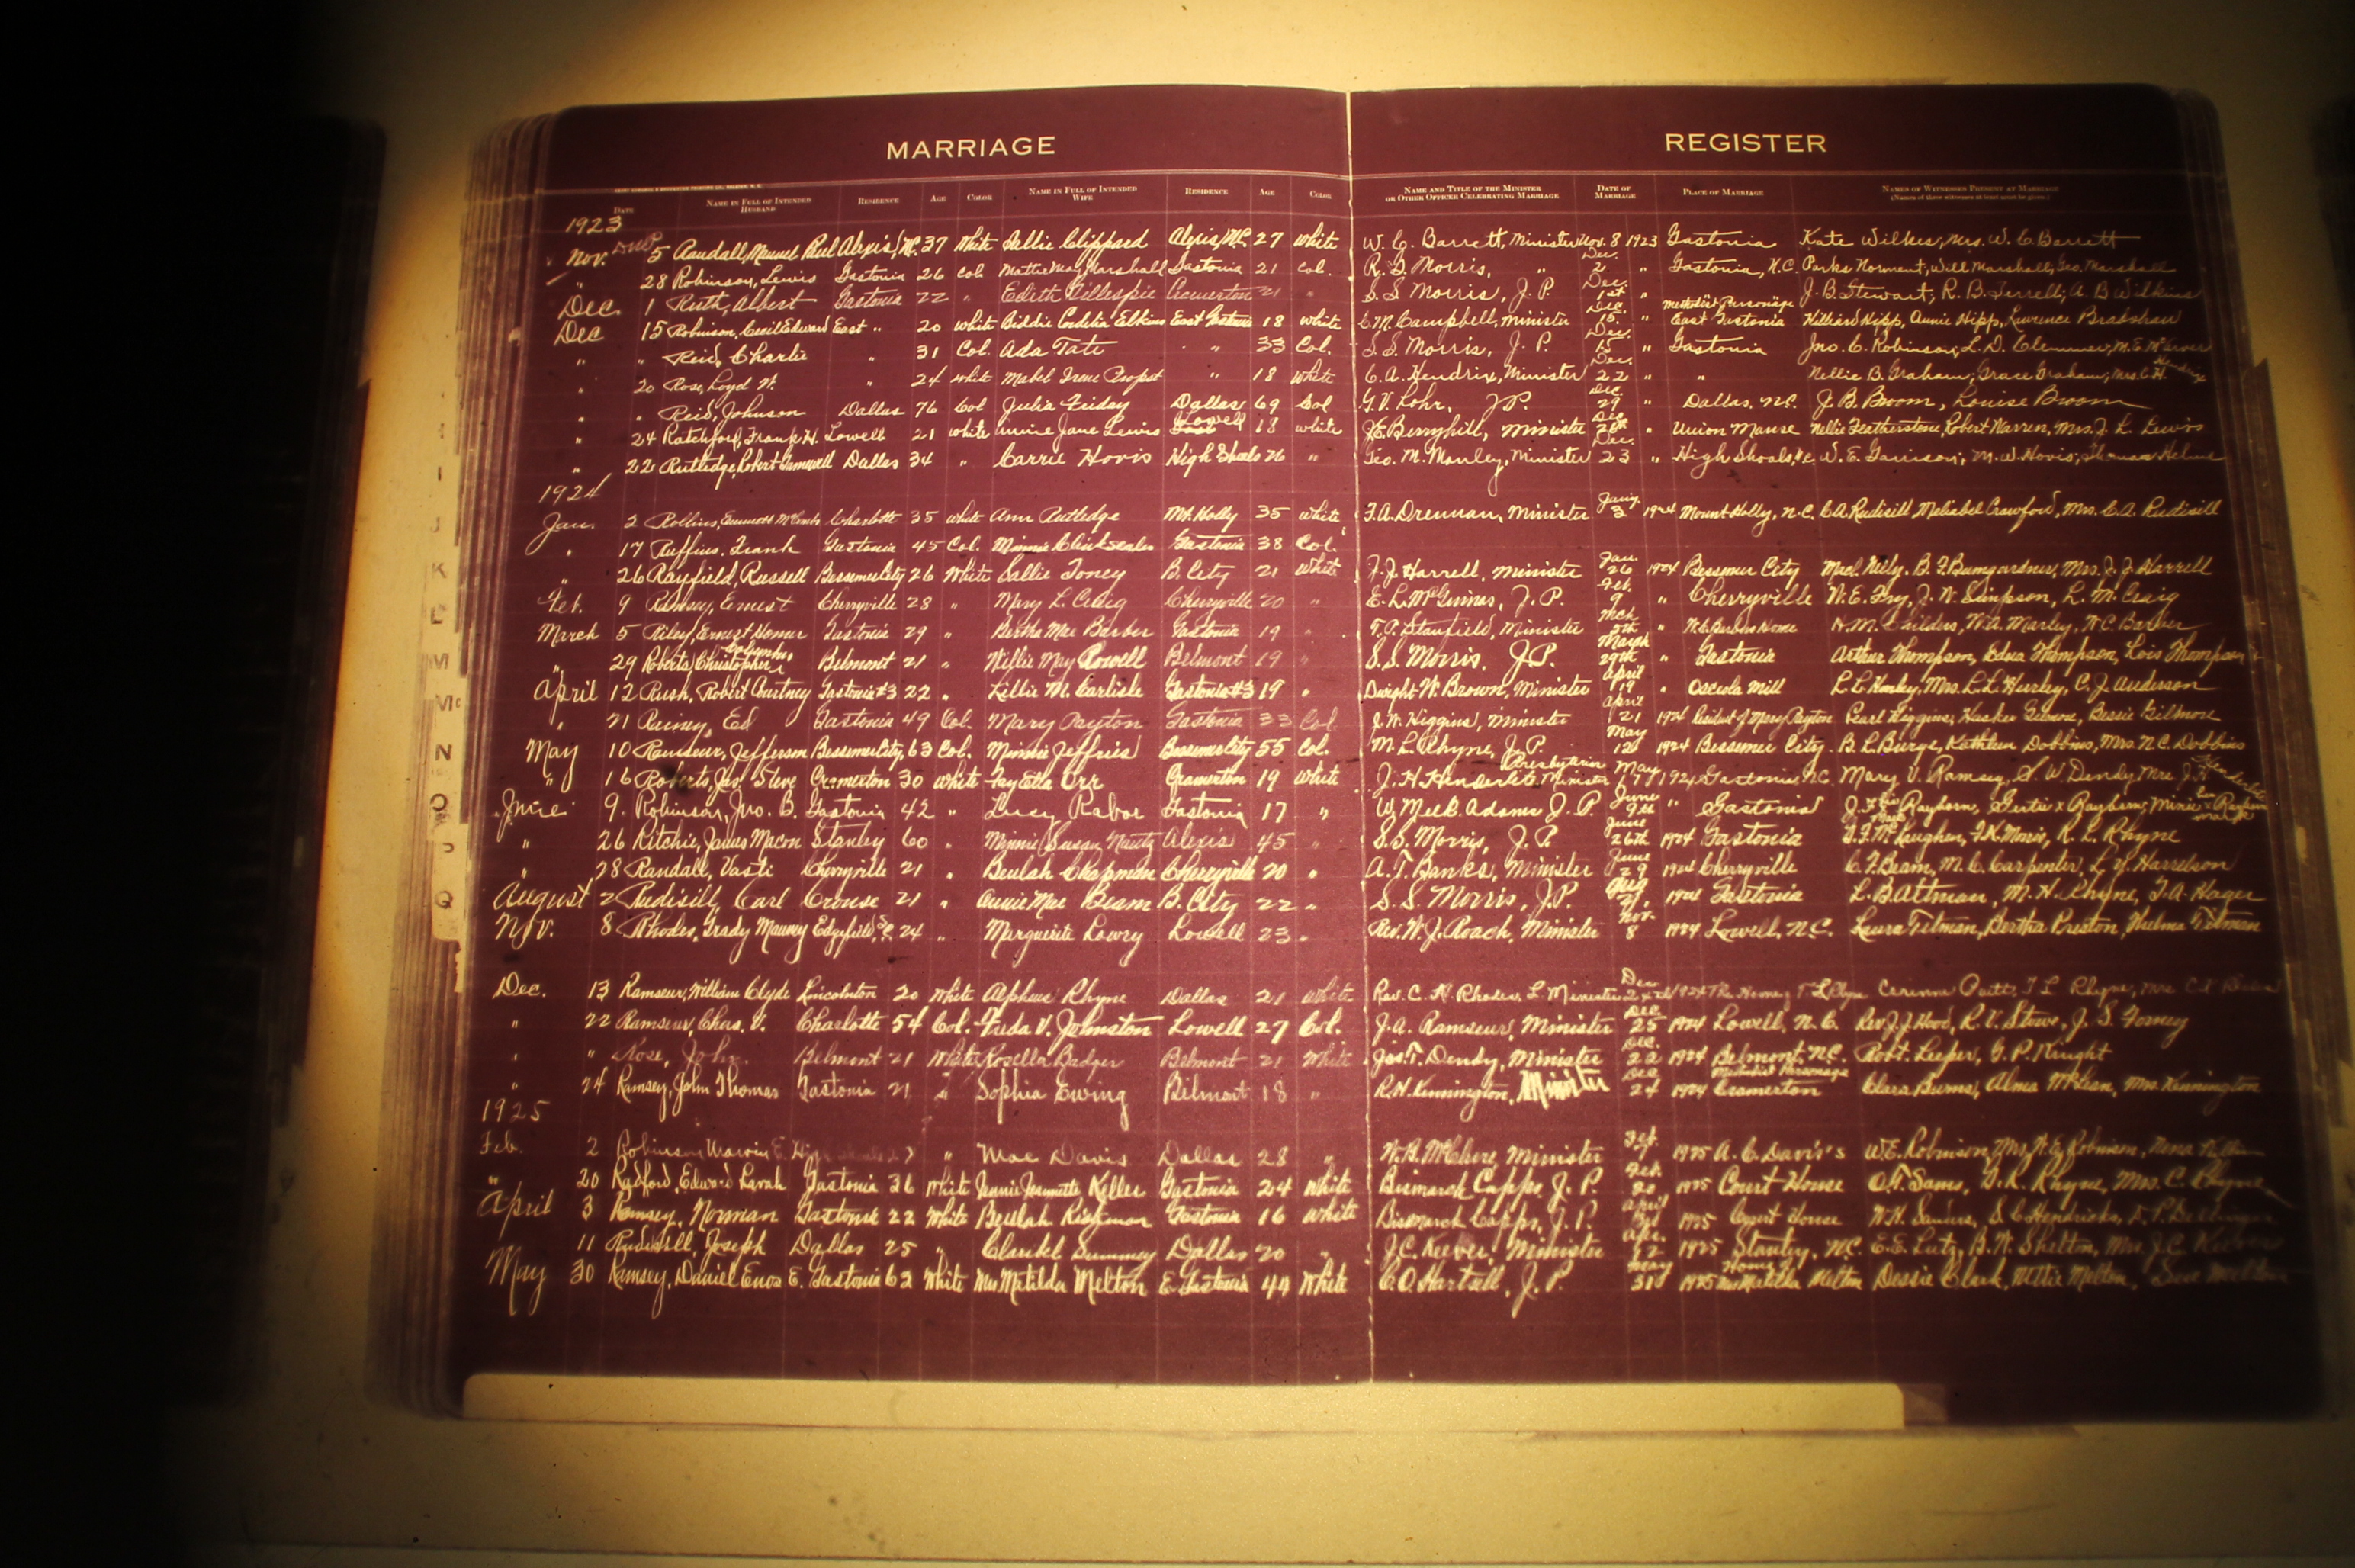 MARRIAGE REGISTER
DATE NAME IN FULL OF INTENDED HUSBAND RESIDENCE AGE COLOR NAME IN FULL OF INTENDED WIFE RESIDENCE AGE COLOR NAME AND TITLE OF THE MINISTER OR OTHER OFFICER CELEBRATING MARRIAGE DATE OF MARRIAGE PLACE OF MARRIAGE NAMES OF WITNESSES PRESENT AT MARRIAGE (Names of three witnesses at least must be given.)
1923
Nov. 5 Randall, Alexis, N.C. 37 White Sallie Clippard Alexis, N.C. 27 White W. C. Barrett, Minister Nov. 8 1923 Gastonia Kate Wilkes, Mrs. W. C. Barrett
" 28 Robinson, Lewis Gastonia 26 Col. Mattie May Marshall Gastonia 21 Col. R. G. Morris, " Dec. 2 " Gastonia, N.C. Parks Norment, Will Marshall, Geo. Marshall
Dec. 1 Ruth, Albert Gastonia 22 " Edith Gillespie Cramerton 21 " S. S. Morris, J. P. Dec. 1st " J. B. Stewart, R. B. Terrell, A. B. Wilkins
Dec 15 Robinson, Cecil Edward East " 20 White Biddie Cordelia Elkins East Gastonia 18 White C. M. Campbell, Minister Dec. 15 " Methodist Parsonage East Gastonia Hilliard Hipp, Annie Hipp, Lawrence Bradshaw
" " Reid, Charlie " 31 Col. Ada Tate " 33 Col. S. S. Morris, J. P. Dec. 15 " Gastonia Jno. C. Robinson, L. D. Clemmer, M. E.
" 20 Rose, Loyd W. " 24 White Mabel Irene Propst " 18 White C. A. Hendrix, Minister Dec. 22 " " Nellie B. Graham, Grace Graham, Mrs. C. H. Hendrix
" " Reid, Johnson Dallas 76 Col Julia Friday Dallas 69 Col G. V. Lohr, J.P. Dec. 29 " Dallas, N.C. J. B. Broom, Louise Broom
" 24 Ratchford, Frank H. Lowell 21 White Annie Jane Lewis Lowell 18 White J. E. Berryhill, Minister Dec. " Union Manse Nellie Featherstone, Robert Warren, Mrs. J. L. Lewis
" 22 Rutledge, Robert Gamewell Dallas 34 " Carrie Hovis High Shoals 26 " Geo. M. Manley, Minister Dec. 23 " High Shoals, N.C. W. E. Garrison, M. W. Hovis, Thomas Helms
1924
Jan. 2 Rollins, Emmett McCombs Charlotte 35 White Ann Rutledge Mt. Holly 35 White F. A. Drennan, Minister Jany. 3 1924 Mount Holly, N.C. C. A. Rudisill, Mehabel Crawford, Mrs. C. A. Rudisill
" 17 Ruffins, Frank Gastonia 45 Col. Minnie Clinkscales Gastonia 38 Col.
" 26 Rayfield, Russell Bessemer City 26 White Sallie Toney B. City 21 White J. J. Harrell, Minister Jan. 26 1924 Bessemer City Mael. Neily, B. F. Bumgardner, Mrs. J. J. Harrell
Feb. 9 Ramsey, Ernest Cherryville 28 " Mary L. Craig Cherryville 20 " E. L. McGinnas, J. P. Feb. 9 " Cherryville W. E. Fry, J. W. Simpson, L. M. Craig
March 5 Riley, Ernest Homer Gastonia 29 " Bertha Mae Barber Gastonia 19 " T. A. Stanfield, Minister Mch 5th " W. C. Barbers Home H. M. Childers, W. A. Marley, W. C. Barber
" 29 Roberts, Christopher Columbus Belmont 21 " Willie May Powell Belmont 19 " S. S. Morris, J. P. March 29th " Gastonia Arthur Thompson, Edna Thompson, Lois Thompson
April 12 Rush, Robert Courtney Gastonia #3 22 " Lillie M. Carlisle Gastonia #3 19 " Dwight W. Brown, Minister April 19 " Osceola Mill L. L. Hurley, Mrs. L. L. Hurley, C. J. Anderson
" 21 Rainey, Ed Gastonia 49 Col. Mary Payton Gastonia 33 Col. J. W. Higgins, Minister April 21 1924 Resident of Mary Payton Pearl Higgins, Husker Gilmore, Bessie Gilmore
May 10 Ramseur, Jefferson Bessemer City, 63 Col. Minnie Jeffries Bessemer City 55 Col. M. L. Rhyne, J. P. May 12 1924 Bessemer City. B. L. Burge, Kathleen Dobbins, Mrs. N. C. Dobbins
" 16 Roberts, Jas. Steve Cramerton 30 White Fay Etta Orr Cramerton 19 White J. H. Henderlite Presbyterian Minister May 17 1924 Gastonia, N.C. Mary V. Ramsey, S. W. Dendy, Mrs. J. H. Henderlite
June 9. Robinson, Jno. B. Gastonia 42 " Lucy Rabor Gastonia 17 " W. Meek Adams J. P. June 9th " Gastonia J. F. his x mark Rayborn, Gertie x Rayborn, Minnie her x mark Rayborn
" 26 Ritchie, James Macon Stanley 60 " Minnie Susan Nantz Alexis 45 " S. S. Morris, J. P. June 26th 1924 Gastonia F. F. McLaughen, F. K. Morris, R. L. Rhyne
" 28 Randall, Vasti Cherryville 21 " Beulah Chapman Cherryville 20 " A. T. Banks, Minister June 29 1924 Cherryville C. F. Beam, M. C. Carpenter, L. Y. Harrelson
August 2 Rudisill, Carl Crouse 21 " Annie Mae Beam B. City 22 " S. S. Morris, J. P. Aug 2, 1924 Gastonia L. B. Altman, M. H. Rhyne, F. A. Hager
Nov. 8 Rhodes, Grady Mauney Edgefield, S.C. 24 " Marguerite Lowry Lowell 23 " Rev. W. J. Roach, Minister Nov. 8 1924 Lowell, N.C. Laura Titman, Bertha Preston, Thelma Titman
Dec. 13 Ramseur, William Clyde Lincolnton 20 White Alpheus Rhyne Dallas 21 White Rev. C. H. Rhodes, L. Minister Dec 1924 The Home of T. L. Rhyne Corinne Puett, T L Rhyne, Mrs C H Rhodes
" 22 Ramseur, Chas. V. Charlotte 54 Col. Freda V. Johnston Lowell 27 Col. J. A. Ramseur, Minister Dec 25 1924 Lowell, N.C. Rev. J. J. Hood, R. T. Stowe, J. S. Forney
" " Rose, John Belmont 21 White Rosella Badger Belmont 21 White Jas. T. Dendy, Minister Dec. 22 1924 Belmont, N.C. Robt. Leeper, G. P. Knight
" 24 Ramsey, John Thomas Gastonia 21 " Sophia Ewing Belmont 18 " R. H. Kennington, Minister Dec 24 1924 Methodist Parsonage Cramerton Clara Burns, Alma McLean, Mrs. Kennington
1925
Feb. 2 Robinson Marvin E. High Shoals 27 " Mae Davis Dallas 28 " W. B. McClure Minister Feb. 1925 A. C. Davis's W. E. Robinson, Mrs. W. E. Robinson, Nona
" 20 Radford, Edward Lavah Gastonia 36 White Jennie Jeannette Keller Gastonia 24 White Bismarck Capps, J. P. Feb. 20 1925 Court House O. F. Sams, G. R. Rhyne, Mrs. C. Rhyne
April 3 Ramsey, Norman Gastonia 22 White Beulah Gastonia 16 White Bismarck Capps, J. P. April 3rd 1925 Court House W. H. Sanders, S. C. Hendricks, L. P. Dellinger
11 Rudisill, Joseph Dallas 25 " Claribel Summey Dallas 20 " J. C. Keever, Minister Apr. 12 1925 Stanley, N.C. E. E. Lutz, B. W. Shelton, Mrs. J. C. Keever
May 30 Ramsey, Daniel Enos E. Gastonia 62 White Mrs Matilda Melton E. Gastonia 44 White C. O. Hartsell, J. P. May 31 1925 Home of Mrs Matilda Melton Dessie Clark, Mittie Melton, Sue Melton
I
J
K
L
M
Mc
N
O
P
Q